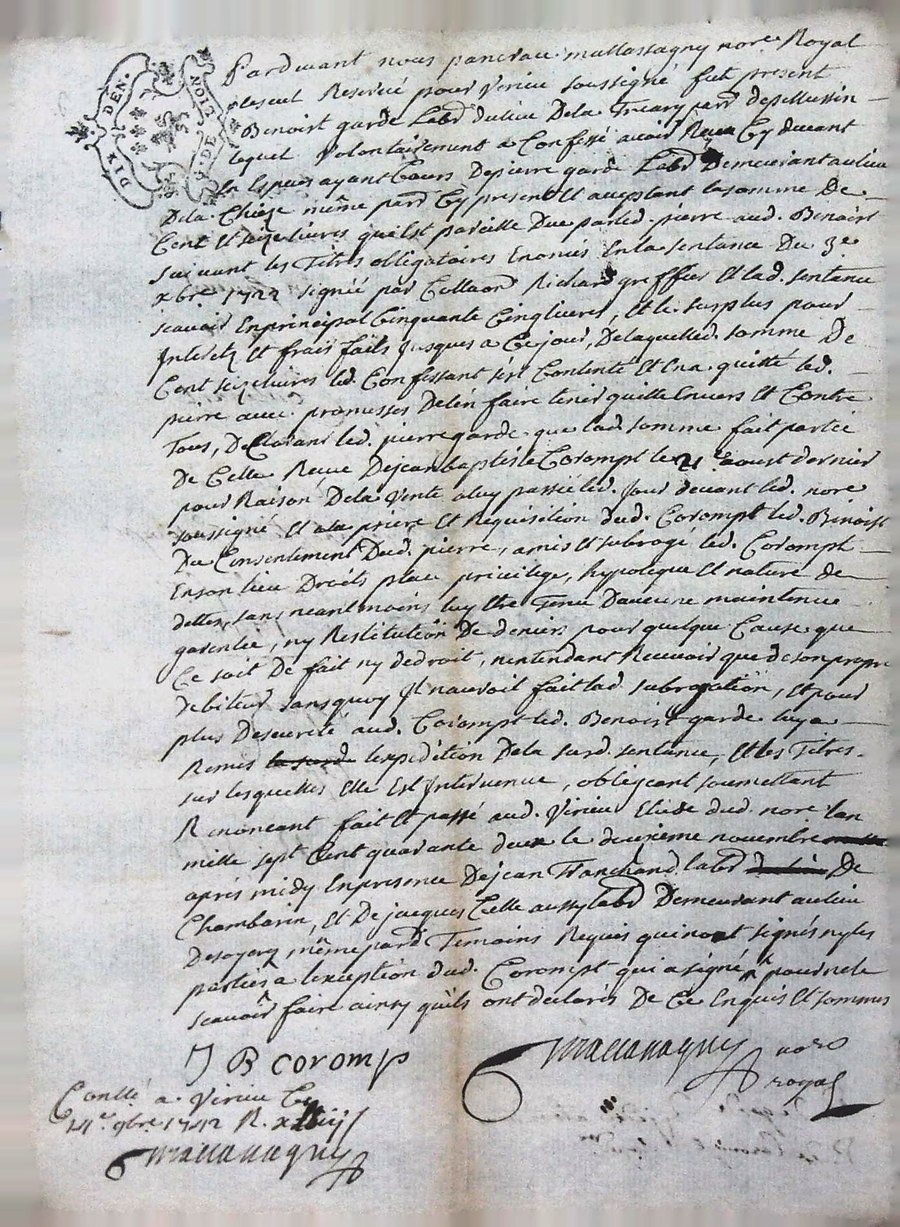 DIX DEN. LION 9. DE
Pardevant nous pancrace mallassagny nore. Royal
Reservé pour virieu soussigné fut present
Benoist garde Labr. du lieu Dela parr. depellussin
lequel volontairement a Confessé avoir Receu Cy devant
En Especes ayant Cours De pierre garde Labr. Demeurant au lieu
Dela Chieze même parr. Cy present Et aceptant la somme De
Cent Et seize livres quil Est pareille Due par led. pierre aud. Benoist
suivant les Titres obligatoires Enoncés En la sentance Du 3e
xbre 1722 signée par Richard greffier Et lad. sentance
scavoir En principal Cinquante Cinq livres, Et le surplus pour
Interetz Et frais faits jusques a Ce jour, De laquelle d. somme De
Cent seize livres led. Confessant s'est Contenté Et En a quitté led.
pierre avec promesses De len faire tenir quitte Envers Et Contre
Tous, Declarant led. pierre garde que lad. somme fait partie
De Celle Receue De jean baptiste Corompt le 21e aoust dernier
pour Raison De la vente a luy passée led. jour devant led. nore
soussigné Et a la priere Et Requisition dud. Corompt led. Benoist
Du Consentement Dud. pierre, a mis Et subrogé led. Corompt
En son lieu Droits place privilege, hypoteque Et nature de
dettes, sans neantmoins luy Etre Tenu Daucune maintenue
garentie, ny Restitution De deniers pour quelque Cause que
Ce soit De fait ny de droit, nentendant Recevoir que de son propre
debiteur sans quoy Il nauroit fait lad. subrogation, Et pour
plus De seureté aud. Corompt led. Benoist garde luy a
Remis la surd. lexpedition De la surd. sentance, Et les Titres
sur lesquelles Elle Est Intervenue, obligeant soumettant
Renonceant fait Et passé aud. Virieu Etude dud. nore lan
mille sept Cent quarante deux le deuxieme novembre
apres midy En presence De jean Tranchand labr. De
Chambarin, Et De jacques Celle aussy labr. Demeurant au lieu
De soyere même parr. Temoins Requis qui nont signés ny les
parties a lexception dud. Corompt qui a signé pour ne le
scavoir faire ainsy quils ont declarés De Ce Enquis Et sommes
J B coromp
mallassagny nore
royal
Conllé a Virieu Ce
14e 9bre 1742 R.
mallassagny